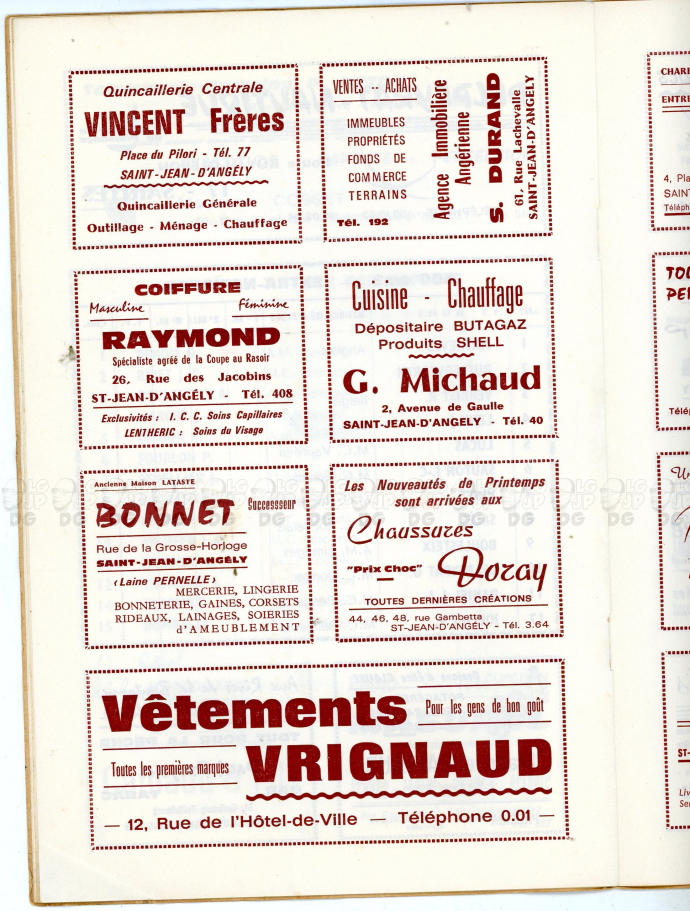 Quincaillerie Centrale
VINCENT Frères
Place du Pilori - Tél. 77
SAINT-JEAN-D'ANGÉLY
Quincaillerie Générale
Outillage - Ménage - Chauffage
VENTES -- ACHATS
IMMEUBLES
PROPRIÉTÉS
FONDS DE
COMMERCE
TERRAINS
Tél. 192
Agence Immobilière
Angérienne
S. DURAND
61, Rue Lachevalle
SAINT-JEAN-D'ANGELY
COIFFURE
Masculine Féminine
RAYMOND
Spécialiste agréé de la Coupe au Rasoir
26, Rue des Jacobins
ST-JEAN-D'ANGÉLY - Tél. 408
Exclusivités : I. C. C. Soins Capillaires
LENTHERIC : Soins du Visage
Cuisine - Chauffage
Dépositaire BUTAGAZ
Produits SHELL
G. Michaud
2, Avenue de Gaulle
SAINT-JEAN-D'ANGELY - Tél. 40
Ancienne Maison LATASTE
BONNET Successseur
Rue de la Grosse-Horloge
SAINT-JEAN-D'ANGÉLY
‹ Laine PERNELLE ›
MERCERIE, LINGERIE
BONNETERIE, GAINES, CORSETS
RIDEAUX, LAINAGES, SOIERIES
d'AMEUBLEMENT
Les Nouveautés de Printemps
sont arrivées aux
Chaussures
"Prix Choc" Doray
TOUTES DERNIÈRES CRÉATIONS
44, 46, 48, rue Gambetta
ST-JEAN-D'ANGÉLY - Tél. 3.64
Vêtements Pour les gens de bon goût
Toutes les premières marques VRIGNAUD
— 12, Rue de l'Hôtel-de-Ville — Téléphone 0.01 —
CHAR
ENTR
4, Pla
SAIN
Téléph
TOU
PE
Télé
ST-
Liv
Se
DG DG DG DG DG DG DG DG DG DG DG DG